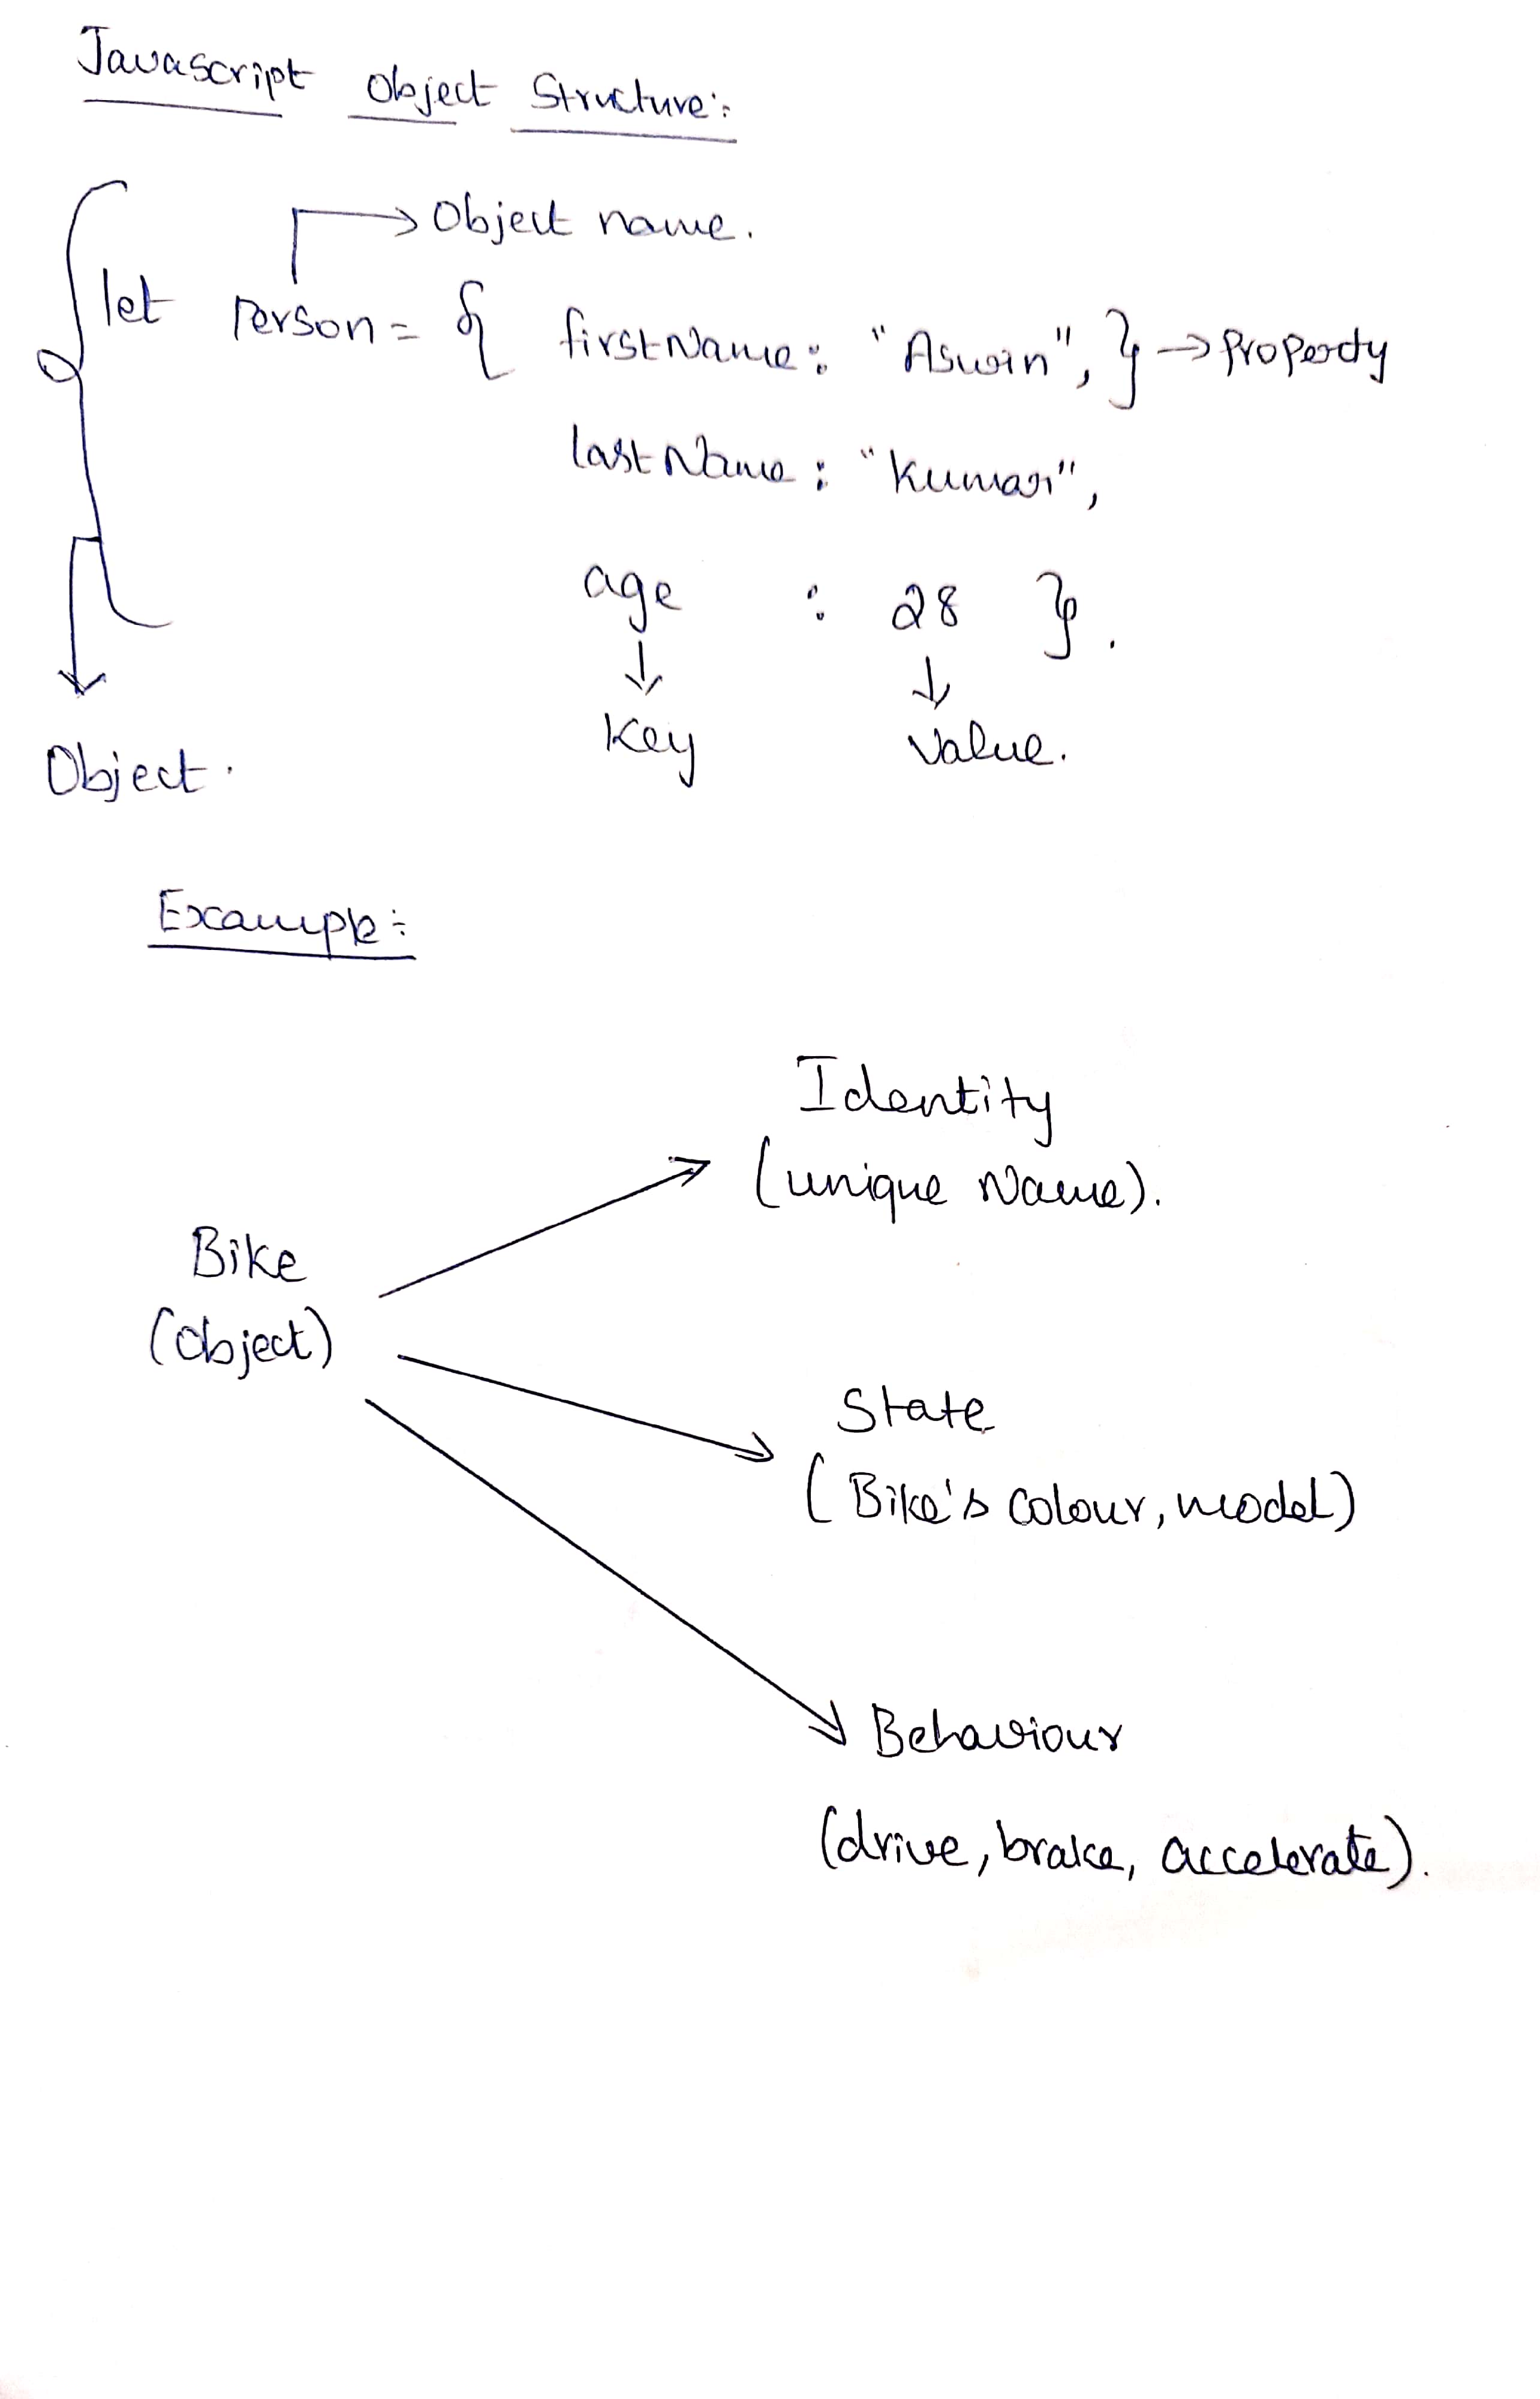 Javascript Object Structure:-
Object name.
let Person = { firstName : "Aswin", } → Property
lastName : "Kumar",
age : 28 }.
Key Value.
Object.
Example:-
Identity
(unique Name).
Bike
(Object)
State
(Bike's Colour, model)
Behaviour
(drive, brake, accelerate).